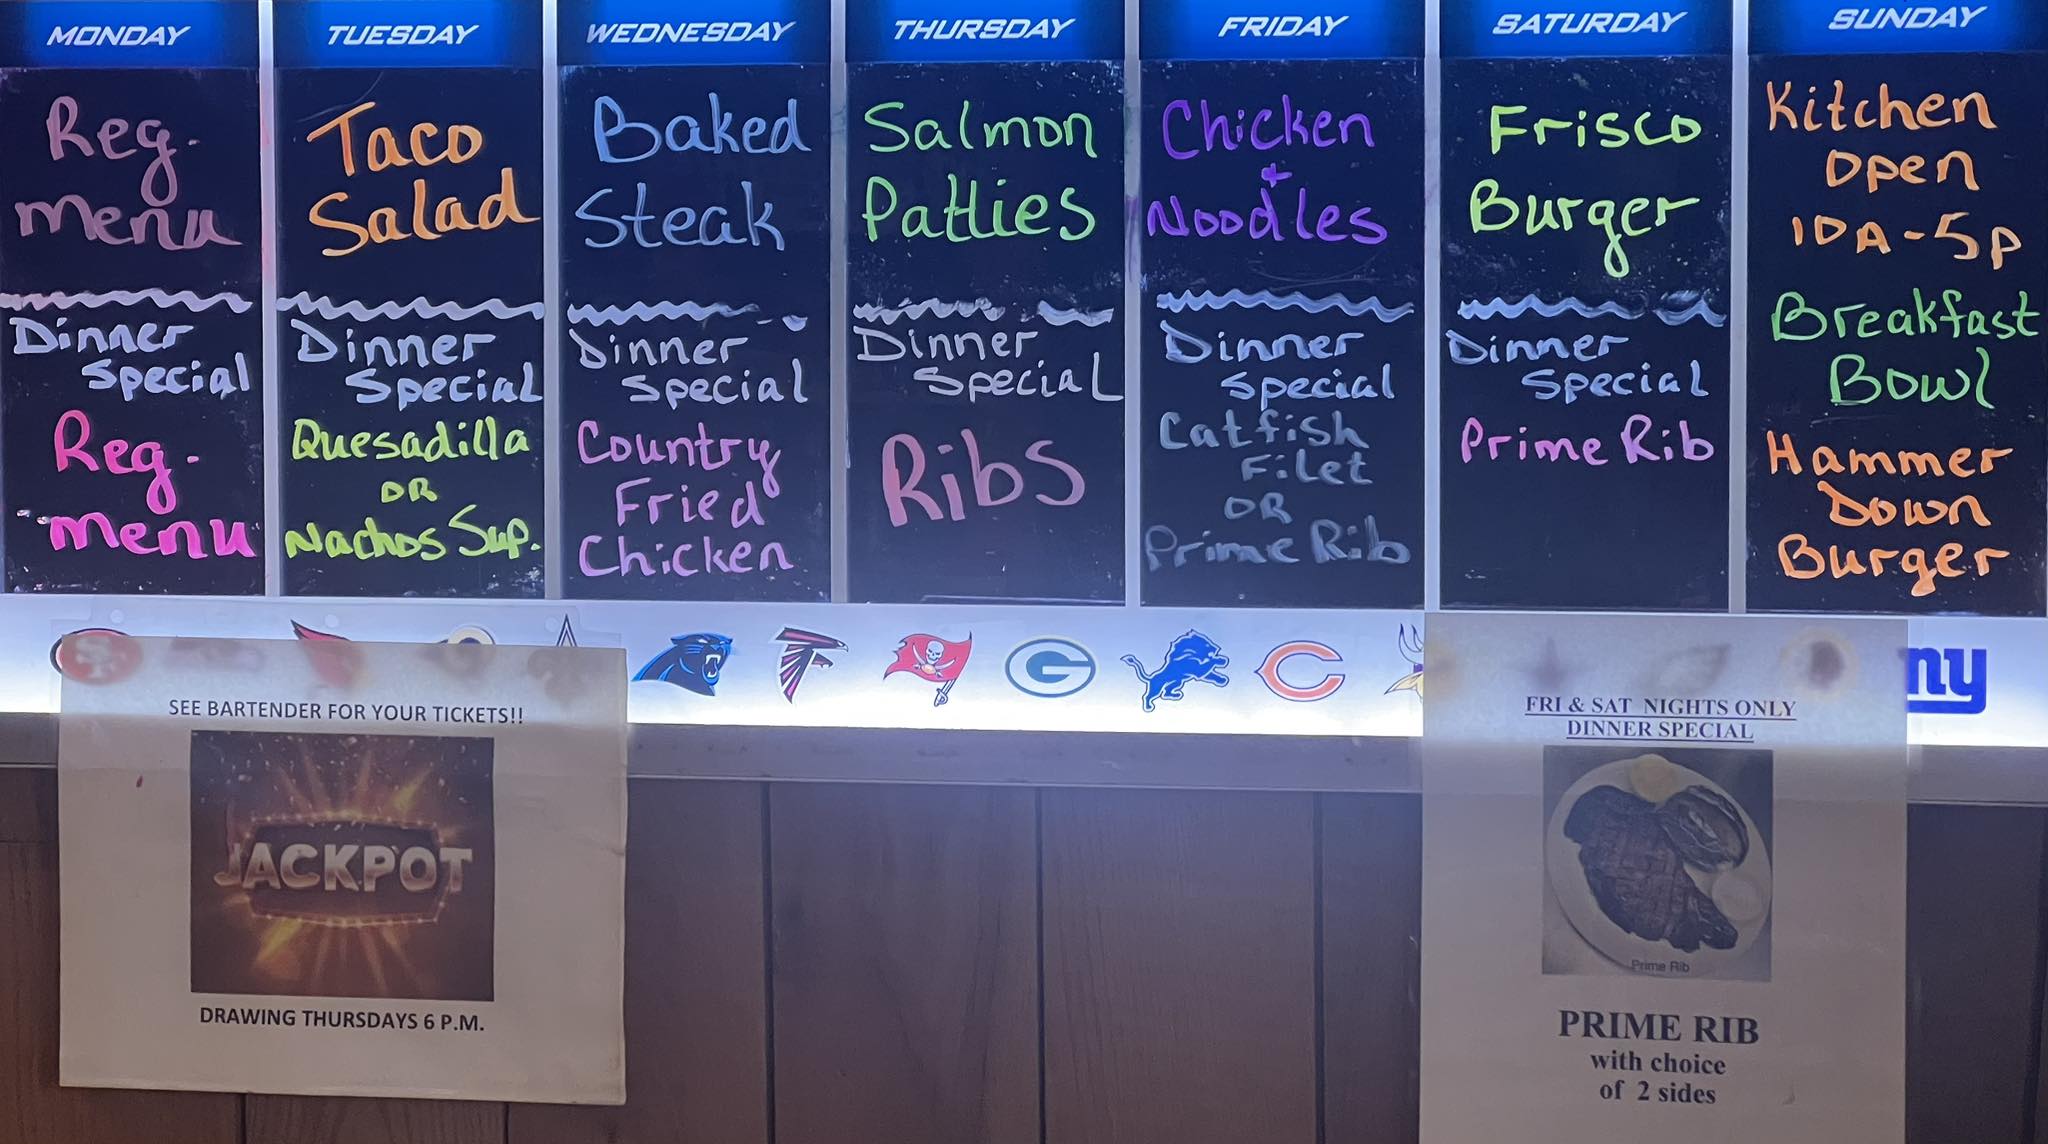 MONDAY
Reg.
menu
Dinner
Special
Reg.
menu
TUESDAY
Taco
Salad
Dinner
Special
Quesadilla
OR
Nachos Sup.
WEDNESDAY
Baked
Steak
Dinner
Special
Country
Fried
Chicken
THURSDAY
Salmon
Patties
Dinner
Special
Ribs
FRIDAY
Chicken
+
Noodles
Dinner
Special
Catfish
Filet
OR
Prime Rib
SATURDAY
Frisco
Burger
Dinner
Special
Prime Rib
SUNDAY
Kitchen
Open
10A-5P
Breakfast
Bowl
Hammer
Down
Burger
SF
G
C
ny
SEE BARTENDER FOR YOUR TICKETS!!
JACKPOT
DRAWING THURSDAYS 6 P.M.
FRI & SAT NIGHTS ONLY
DINNER SPECIAL
Prime Rib
PRIME RIB
with choice
of 2 sides